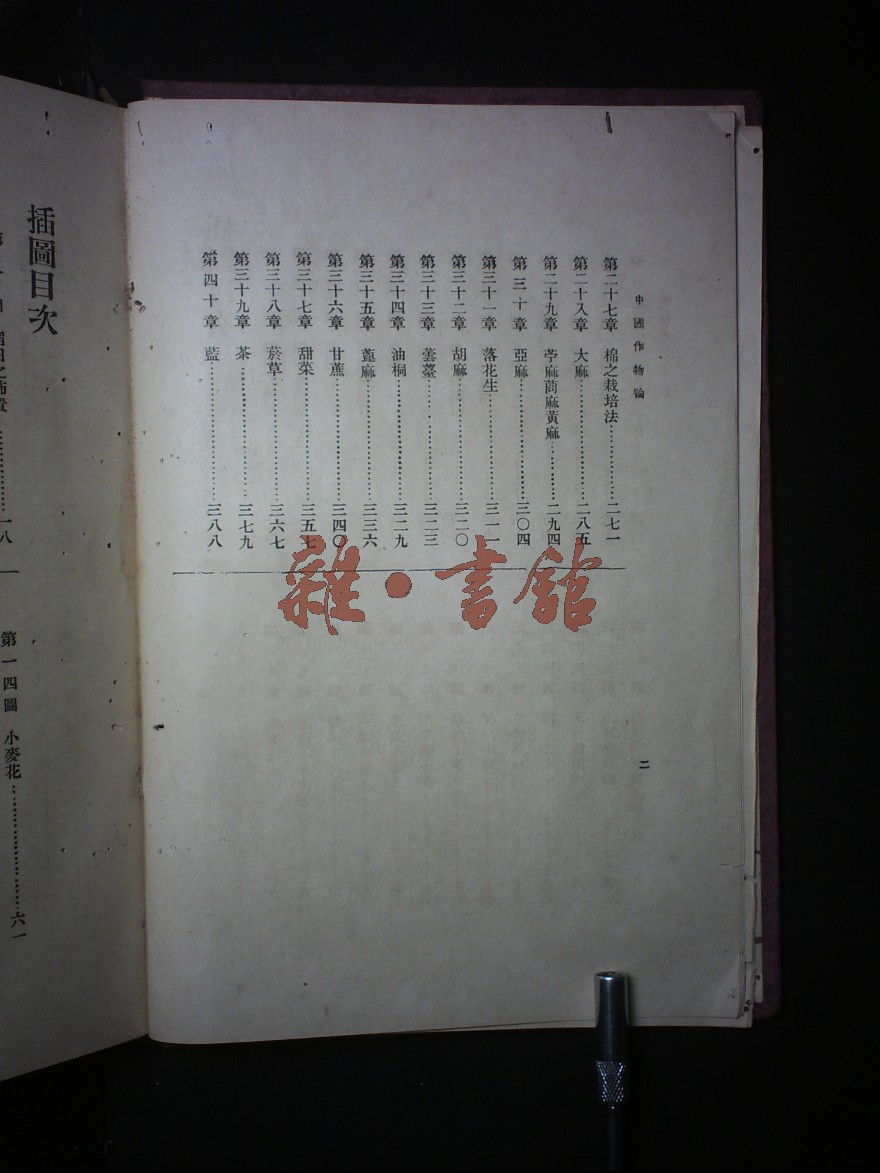 中國作物論
第二十七章 棉之栽培法…………二七一
第二十八章 大麻…………二八五
第二十九章 苧麻茼麻黃麻…………二九四
第三十章 亞麻…………三〇四
第三十一章 落花生…………三一一
第三十二章 胡麻…………三二〇
第三十三章 蕓薹…………三二三
第三十四章 油桐…………三二九
第三十五章 蓖麻…………三三六
第三十六章 甘蔗…………三四〇
第三十七章 甜菜…………三五七
第三十八章 菸草…………三六七
第三十九章 茶…………三七九
第四十章 藍…………三八八
二
雜·書館
插圖目次
一八
第一四圖 小麥花…………六一